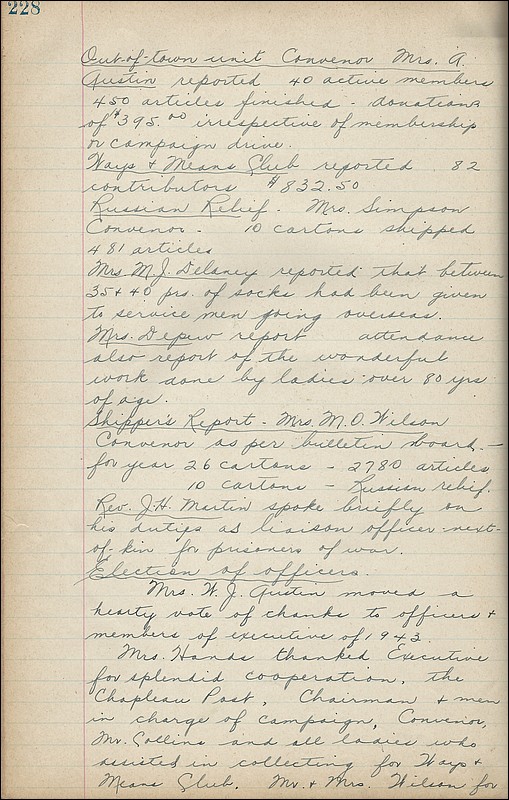 228
Out-of-town unit Convenor Mrs. A.
Austin reported 40 active members
450 articles finished - donations
of $395.00 irrespective of membership
or campaign drive.
Ways & Means Club reported 82
contributors $832.50
Russian Relief. Mrs. Simpson
Convenor. 10 cartons shipped
481 articles
Mrs M.J. Delaney reported that between
35 & 40 prs. of socks had been given
to service men going overseas.
Mrs. Depew report attendance
also report of the wonderful
work done by ladies over 80 yrs
of age.
Shipper's Report - Mrs. M.O. Wilson
Convenor as per bulletin board -
for year 26 cartons - 2780 articles
10 cartons - Russian relief.
Rev. J.H. Martin spoke briefly on
his duties as liaison officer-next-
of-kin for prisoners of war.
Election of officers.
Mrs. W.J. Austin moved a
hearty vote of thanks to officers &
members of executive of 1943.
Mrs. Hands thanked Executive
for splendid cooperation, the
Chapleau Post, Chairman & men
in charge of campaign, Convenor,
Mr. Collins and all ladies who
assisted in collecting for Ways &
Means Club. Mr. & Mrs. Wilson for